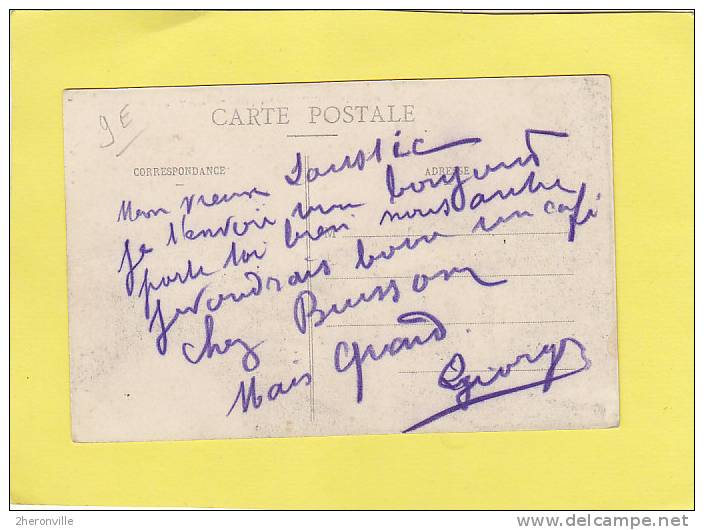 9E
CARTE POSTALE
CORRESPONDANCE
ADRESSE
Mon vieux
je t'envoie un bonjour
porte toi bien nous autre
je voudrais boire un café
chez Buisson
Mais quand
Georges
2heronville
delcampe.net